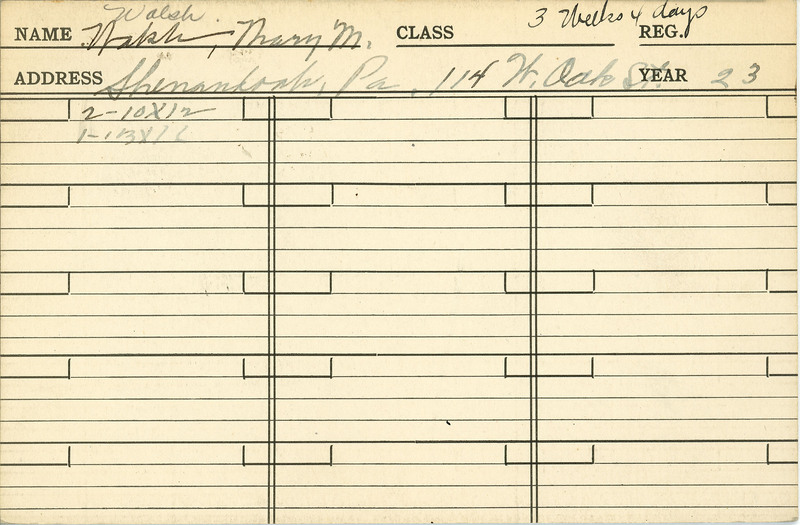 Walsh
NAME Walsh, Mary M. CLASS 3 Weeks 4 days REG.
ADDRESS Shenandoah, Pa. 114 W. Oak St. YEAR 23
2-10X12